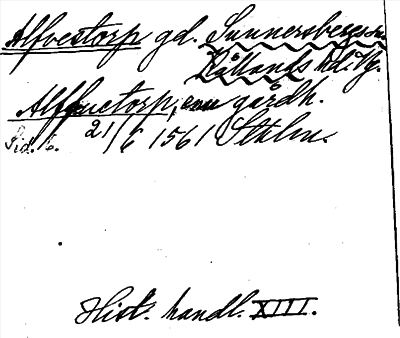 Alfvestorp gd. Sunnersbergs sn
Kållands hd. Vg.
Alffuetorp, een gårdh.
Sid. 6. 21/6 1561 Sthlm.
Hist. handl. XIII.